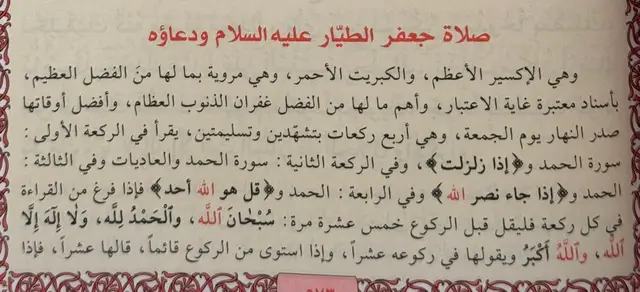 صلاة جعفر الطيّار عليه السلام ودعاؤه
وهي الإكسير الأعظم، والكبريت الأحمر، وهي مروية بما لها منَ الفضل العظيم،
بأسناد معتبرة غاية الاعتبار، وأهم ما لها من الفضل غفران الذنوب العظام، وأفضل أوقاتها
صدر النهار يوم الجمعة، وهي أربع ركعات بتشهّدين وتسليمتين، يقرأ في الركعة الأولى :
سورة الحمد و﴿إذا زلزلت﴾، وفي الركعة الثانية : سورة الحمد والعاديات وفي الثالثة :
الحمد و﴿إذا جاء نصر الله﴾ وفي الرابعة : الحمد و﴿قل هو الله أحد﴾ فإذا فرغ من القراءة
في كل ركعة فليقل قبل الركوع خمس عشرة مرة: سُبْحَانَ ٱللَّه، وٱلْحَمْدُ لِلَّه، وَلَا إِلَهَ إِلَّا
ٱللَّه، وٱللَّهُ أَكْبَرُ ويقولها في ركوعه عشراً، وإذا استوى من الركوع قائماً، قالها عشراً، فإذا